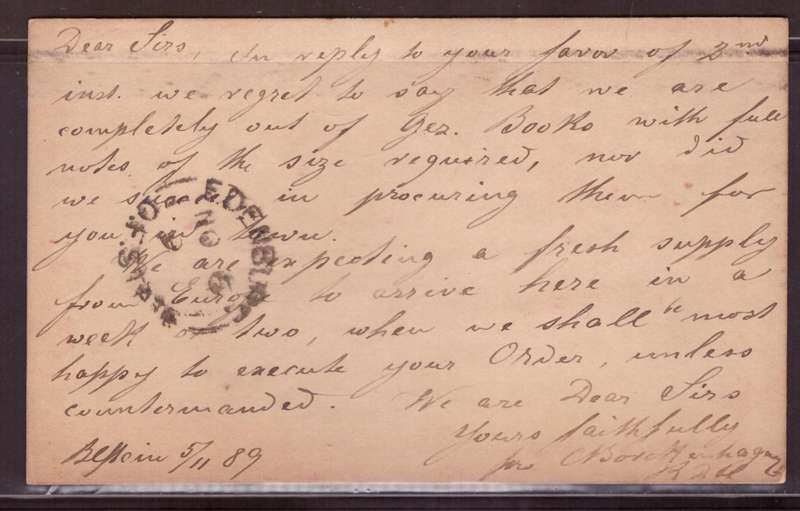 Dear Sirs, In reply to your favor of 2nd
inst. we regret to say that we are
completely out of Gez. Books with full
notes of the size required, nor did
we succeed in procuring them for
you in town.
We are expecting a fresh supply
from Europe to arrive here in a
week or two, when we shall be most
happy to execute your Order, unless
countermanded. We are Dear Sirs
Yours faithfully
Blftein 5/11 89 pro C Borckenhagen
EDENBURG
NO 6
89